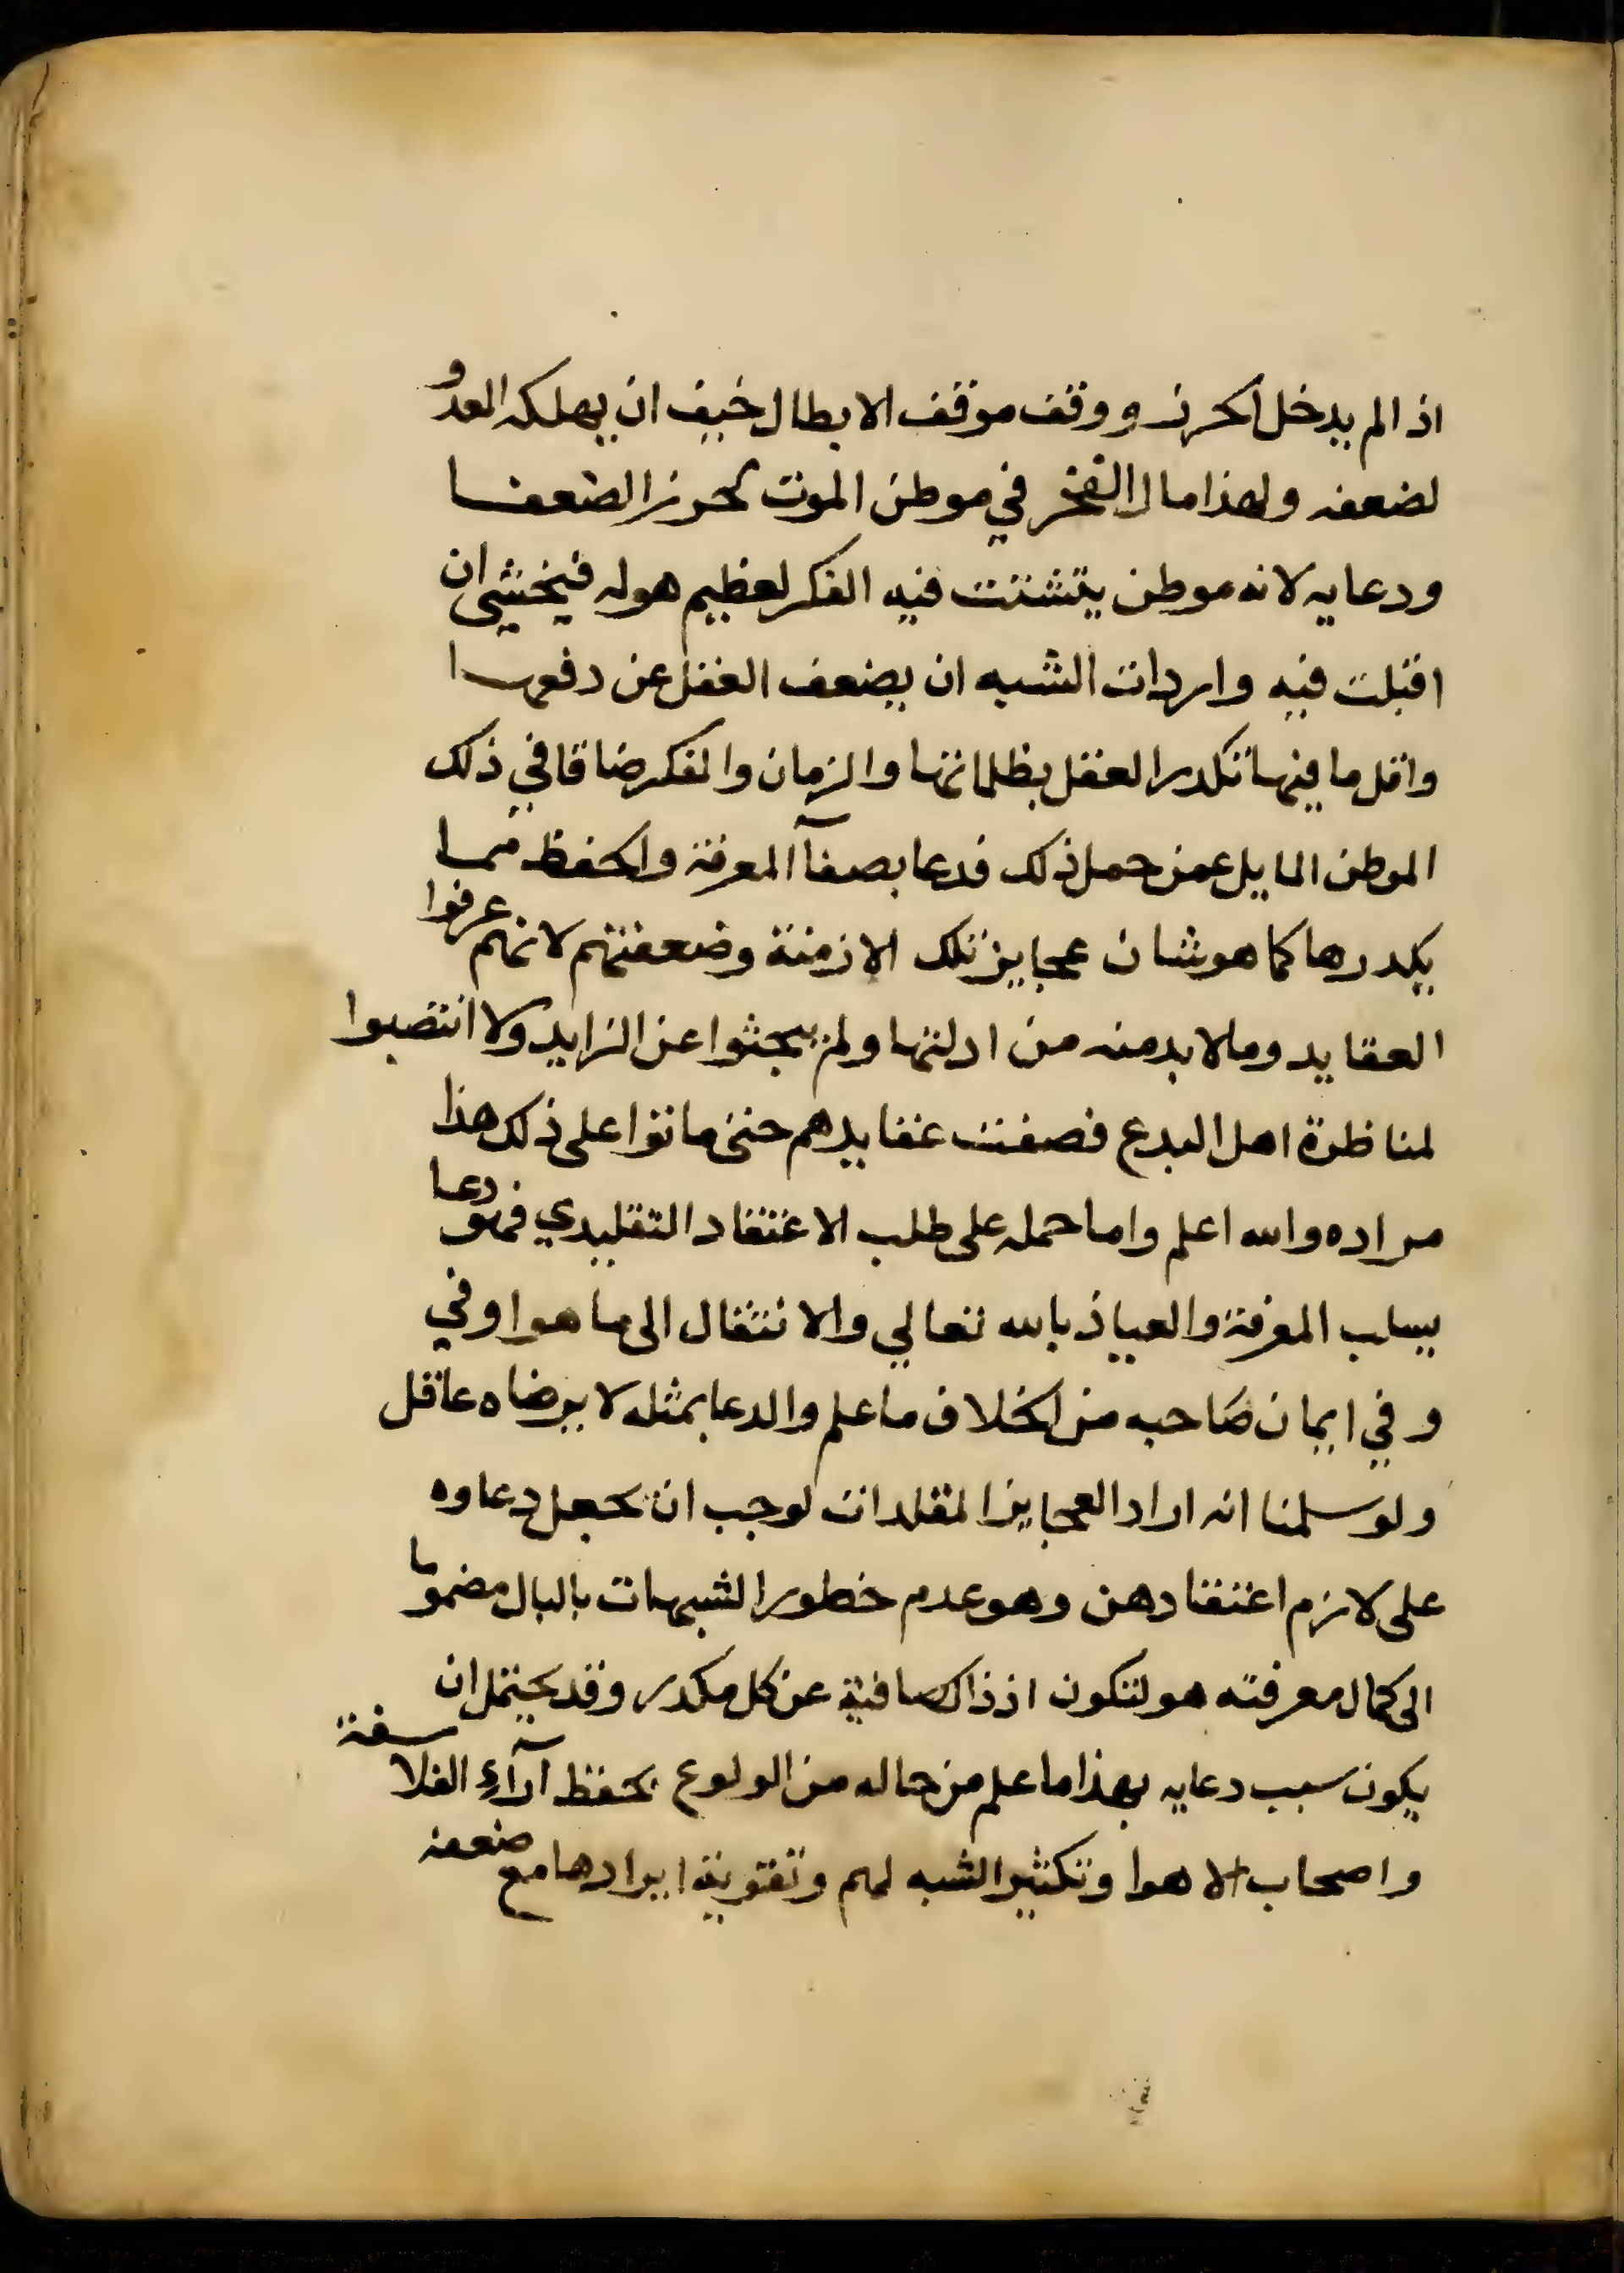 اذا لم يدخل الحرز ووقف موقف الابطال خيف ان يهلكه العدو
لضعفه ولهذا مال الفخر في موطن الموت لحرز الضعفا
ودعا به لانه موطن يتشتت فيه الفكر لعظيم هوله فيخشى ان
اقبلت فيه واردات الشبه ان يضعف العقل عن دفعها
واقل ما فيها تكدر العقل بظلماتها والزمان والفكر ضاقا في ذلك
الموطن الهايل عن حمل ذلك فدعا بصفآ المعرفة والحفظ مما
يكدرها كما هو شان عجايز تلك الازمنة وضعفتهم لانهم عرفوا
العقايد وما لا بد منه من ادلتها ولم يبحثوا عن الزايد ولا انتصبوا
لمناظرة اهل البدع فصفت عقايدهم حتى ماتوا على ذلك هذا
مراده والله اعلم واما حمله على طلب الاعتقاد التقليدي فهو دعا
بسلب المعرفة والعياذ بالله تعالي والانتقال الى ما هو اوفي
وفي ايمان صاحبه من الخلاف ما علم والدعا بمثله لا يرضاه عاقل
ولو سلمنا انه اراد العجايز المقلدات لوجب ان يحمل دعاوه
على لازم اعتقادهن وهو عدم خطور الشبهات بالبال مضموما
الى كمال معرفته هو لتكون اذ ذاك صافية عن كل مكدر وقد يحتمل ان
يكون سبب دعايه بهذا ما علم من حاله من الولوع بحفظ آرآء الفلاسفة
واصحاب الاهوا وتكثير الشبه لهم وتقوية ايرادها مع ضعفه